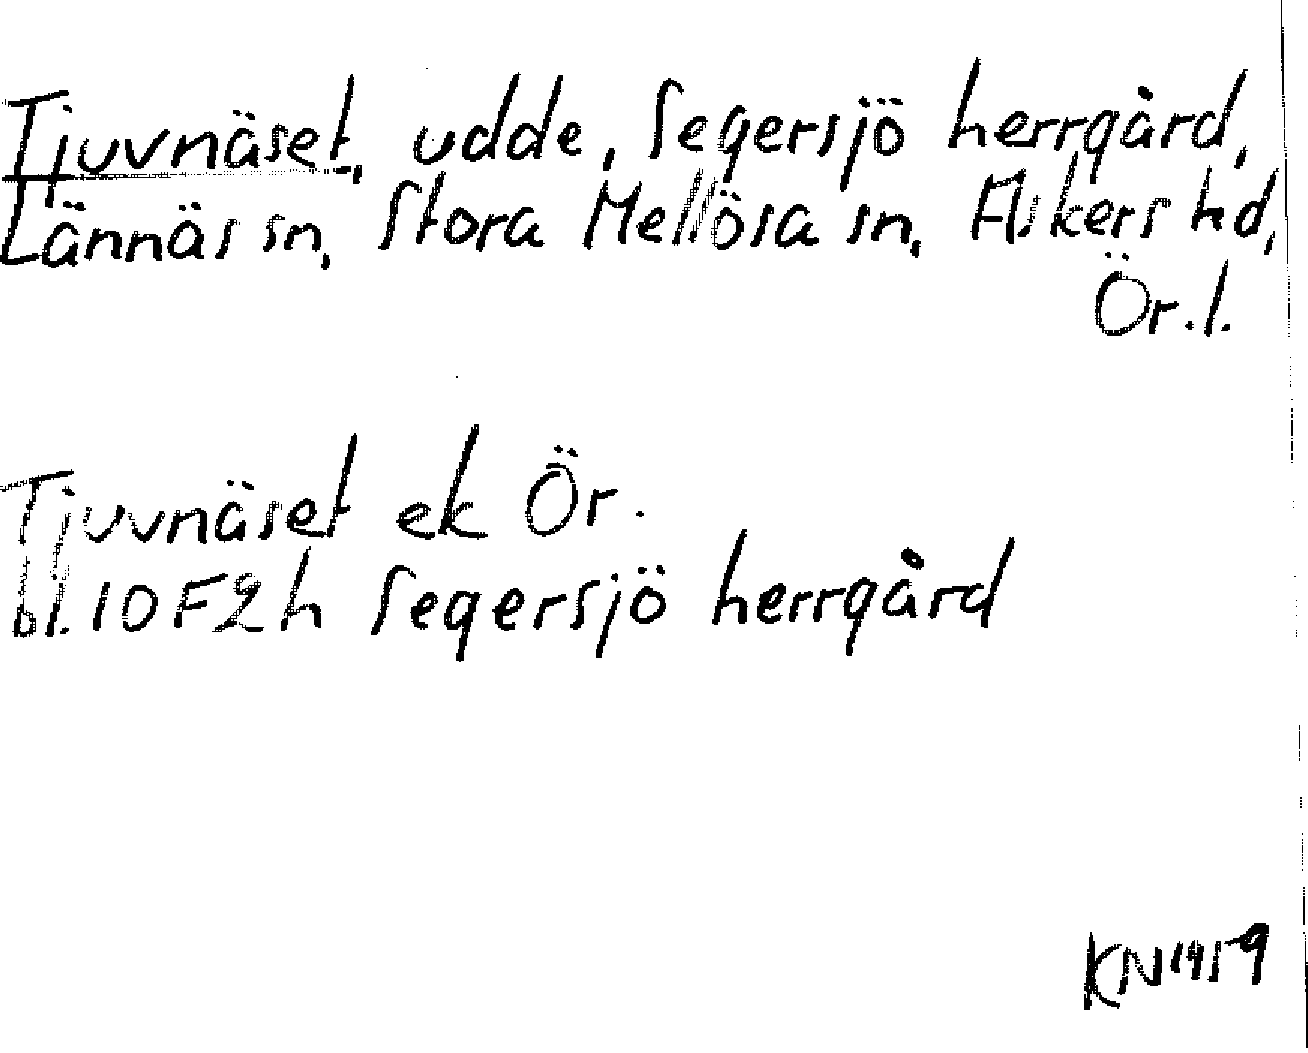 Tjuvnäset, udde, Segersjö herrgård,
Lännäs sn, Stora Mellösa sn, Askers hd,
Ör.l.
Tjuvnäset ek Ör.
bl. 10F2h Segersjö herrgård